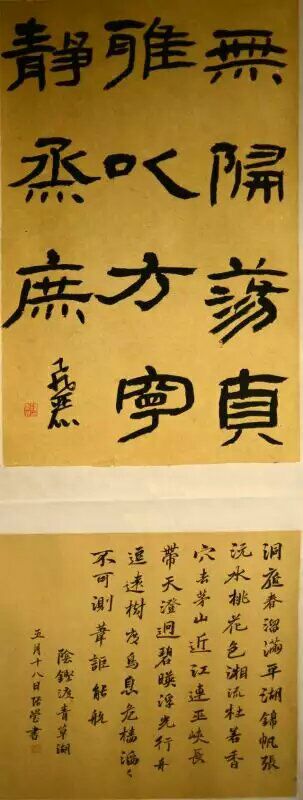 無偏蕩貞
雅以方寧
靜烝庶
洞庭春溜滿平湖錦帆張
沅水桃花色湘流杜若香
穴去茅山近江連巫峽長
帶天澄迥碧暎浮光行舟
逗遠樹度鳥息危檣滔々
不可測葦詎能航
陰鏗渡青草湖
五月十八日書